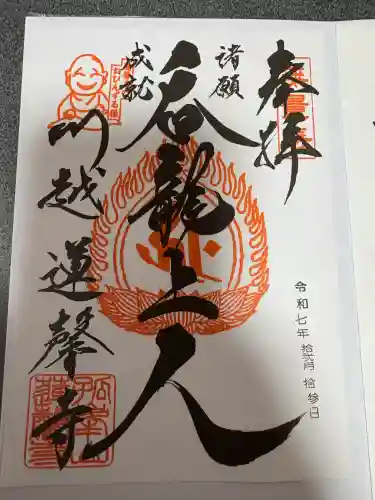 奉拝
諸願
成就
呑龍上人
川越蓮馨寺
令和七年 拾弐月 拾参日
おびんずる様